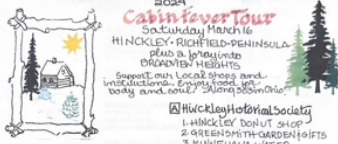 2024
Cabin Fever Tour
Saturday March 16
HINCKLEY • RICHFIELD • PENINSULA
plus a foray into
BROADVIEW HEIGHTS
Support our Local shops and
institutions. Enjoy food for
body and soul. Along 303 in Ohio.
A Hinckley Historical Society
1. HINCKLEY DONUT SHOP
2 GREENSMITH GARDEN & GIFTS